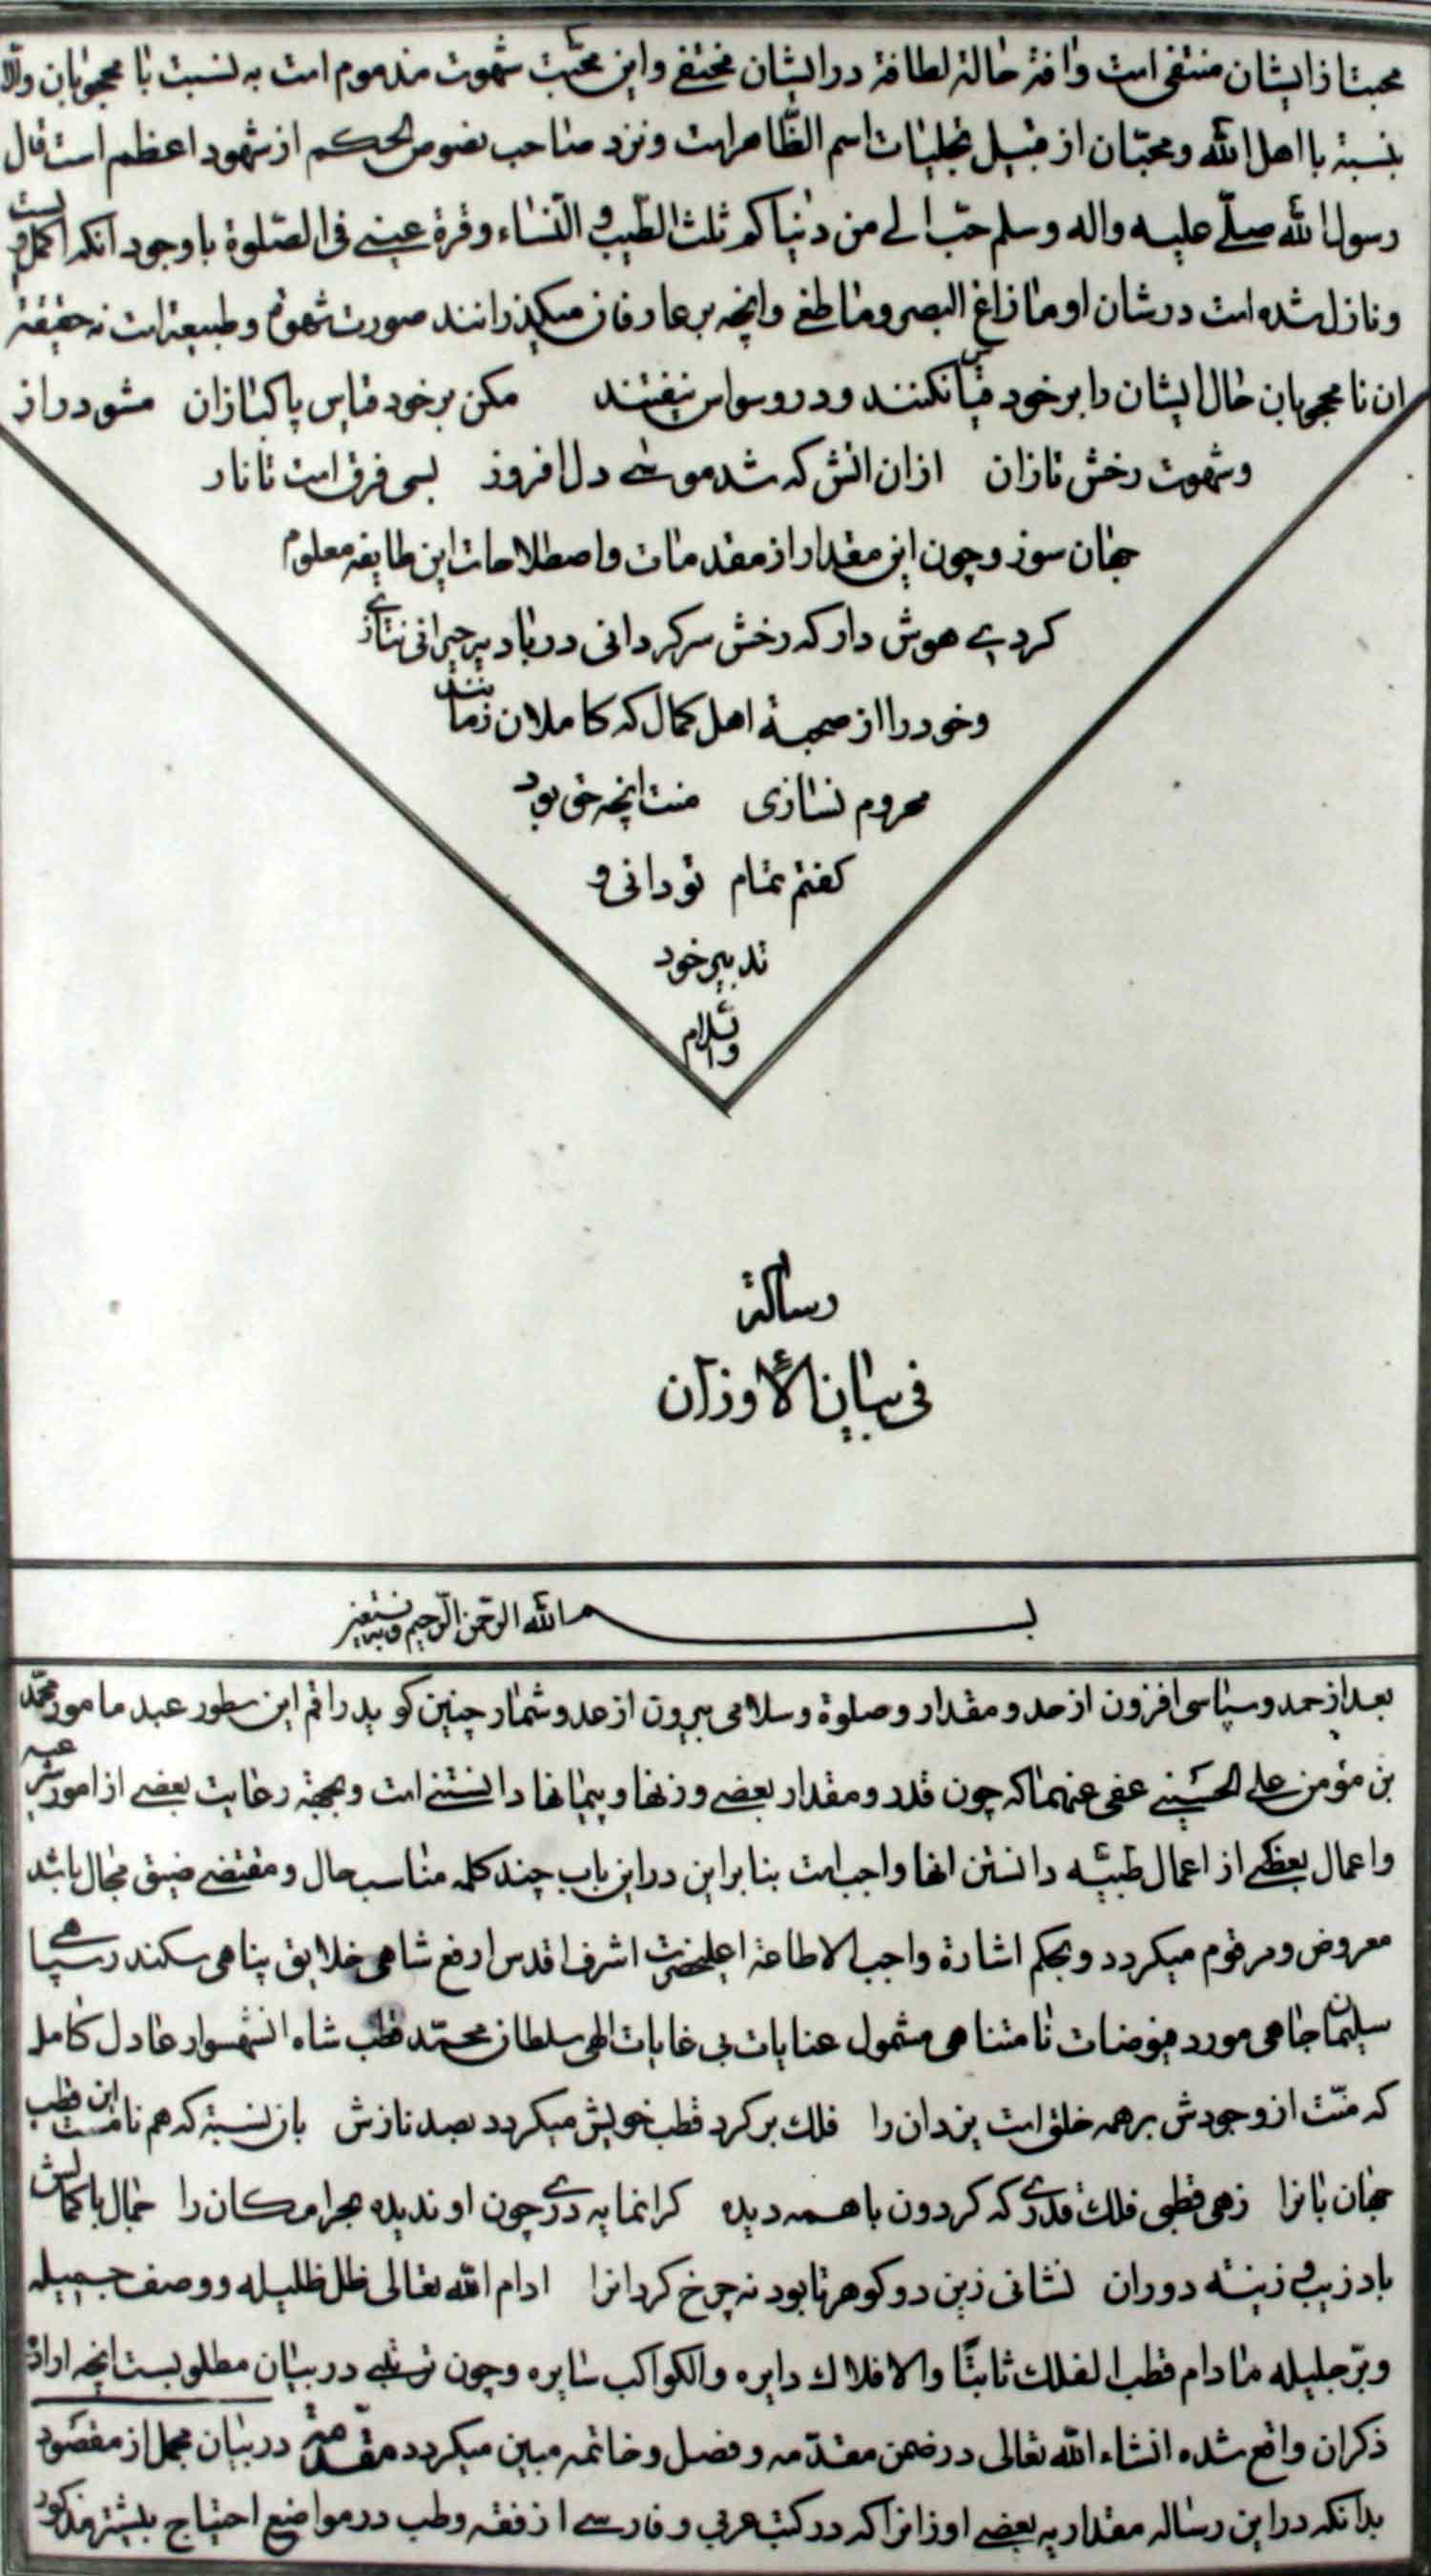 محبت از ایشان منتفی است وافة حالة لطافة در ایشان مختفی و این محبّت شهوت مذموم است به نسبت با محجوبان والّا
بنسبة با اهل الله و محبّان از قبیل تجلیات اسم الظّاهر است و نزد صاحب فصوص الحکم از شهود اعظم است قال
رسول الله صلّی علیه واله وسلم حبّب الی من دنیاکم ثلث الطّیب و النّساء و قرة عینی فی الصّلوة با وجود انکه اکمل است و
و نازل شده است در شان او ما زاغ البصر وما طغی وانچه بر عارفان میگذرانند صورت شهوة و طبیعة است نه حقیقة
ان تا محجوبان حال ایشان را بر خود قیاس نکنند و در وسواس نیفتند مکن بر خود قیاس پاکبازان مشو در از
و شهوت رخش تازان ازان اتش که شد موسی دل افروز بسی فرق است تا نار
جهان سوز و چون این مقدار از مقدمات واصطلاحات این طایفه معلوم
کردی هوش دار که رخش سرکردانی در بادیه حیرانی نتازی
و خود را از صحبة اهل کمال که کاملان زمانند
محروم نسازی منت انچه حق بود
کفتم تمام تو دانی و
تدبیر خود
والسّلام
رسالة
فی بیان الأوزان
بسم الله الرّحمن الرّحیم وبه نستعین
بعد از حمد و سپاسی افزون از حد و مقدار و صلوة و سلامی بیرون از عد و شمار چنین کوید راقم این سطور عبد مامور محمّد
بن مؤمن علی الحسینی عفی عنهما که چون قدر و مقدار بعضی وزنها و پیمانها دانستنی است و بجهة رعایت بعضی از امور شرعیه
واعمال بعضی از اعمال طبیّه دانستن انها واجب است بنا براین دراین باب چند کلمه مناسب حال و مقتضی ضیق مجال باشد
معروض و مرقوم میکردد و بحکم اشارة واجب الاطاعة اعلیحضرت اشرف اقدس ارفع شاهی خلایق پناهی سکندر سپاهی
سلیمان جاهی مورد فیوضات نا متناهی مشمول عنایات بی غایات الهی سلطان محمّد قطب شاه ان شهسوار عادل کامل
که منّت از وجودش بر همه خلق است یزدان را فلک بر کرد قطب خویش میکردد بصد نازش بان نسبة که هم نامست این قطب
جهان بانرا زهی قطبی فلک قدری که کردون با همه دیده کرانمایه دری چون او ندیده بحر امکان را جمال با کمالش
باد زیب و زینة دوران نشانی زین دو کوهر تا بود نه چرخ کردانرا ادام الله تعالی ظل ظلیله و وصف جمیله
و برّ جلیله ما دام قطب الفلک ثابتًا والافلاک دایره والکواکب سایره و چون ترتیبی در بیان مطلوبست انچه اراده
ذکر ان واقع شده انشاء الله تعالی در ضمن مقدّمه و فصل و خاتمه مبین میکردد مقدّمه در بیان مجمل از مقصود
بدانکه در این رساله مقداریه بعضی اوزانرا که در کتب عربی و فارسی از فقه و طب در مواضع احتیاج بیشتر مذکور